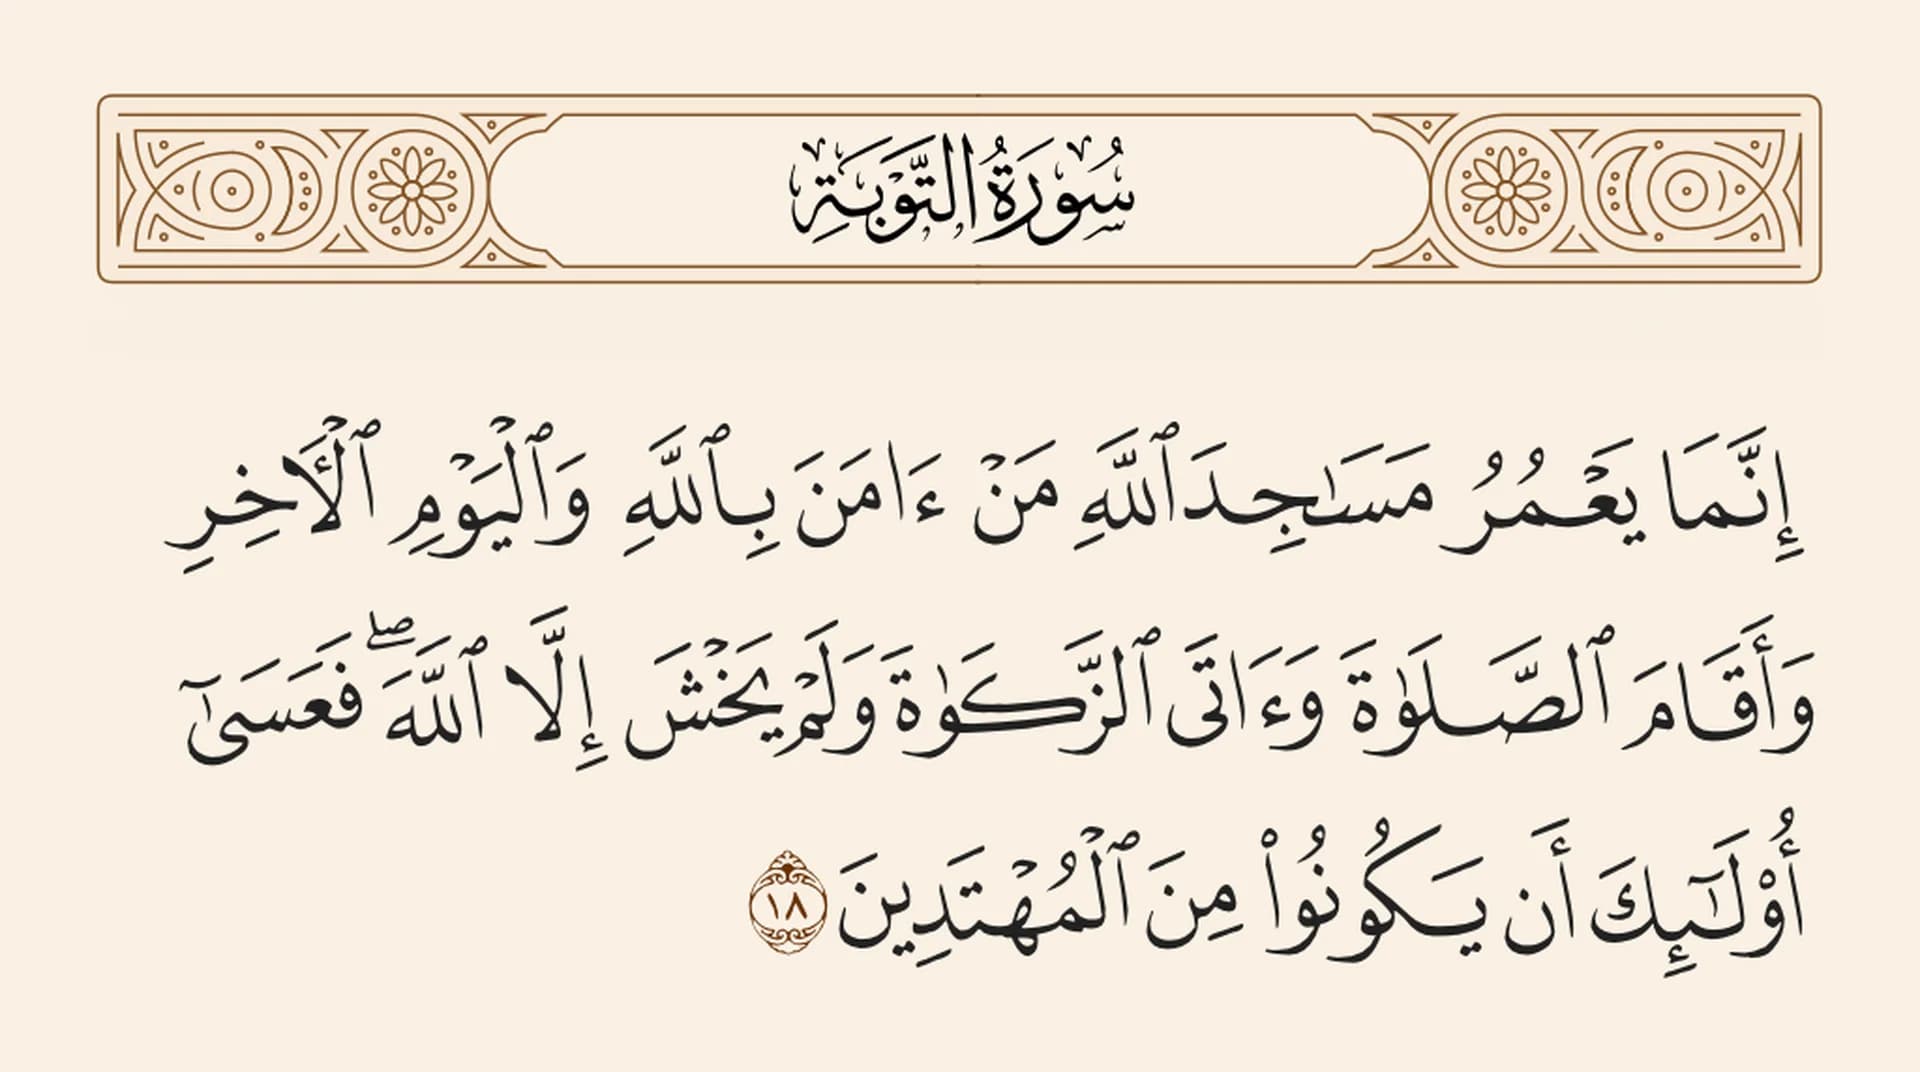 سُورَةُ التَّوْبَةِ
إِنَّمَا يَعْمُرُ مَسَـٰجِدَ ٱللَّهِ مَنْ ءَامَنَ بِٱللَّهِ وَٱلْيَوْمِ ٱلْـَٔاخِرِ
وَأَقَامَ ٱلصَّلَوٰةَ وَءَاتَى ٱلزَّكَوٰةَ وَلَمْ يَخْشَ إِلَّا ٱللَّهَ ۖ فَعَسَىٰٓ
أُو۟لَـٰٓئِكَ أَن يَكُونُوا۟ مِنَ ٱلْمُهْتَدِينَ ١٨